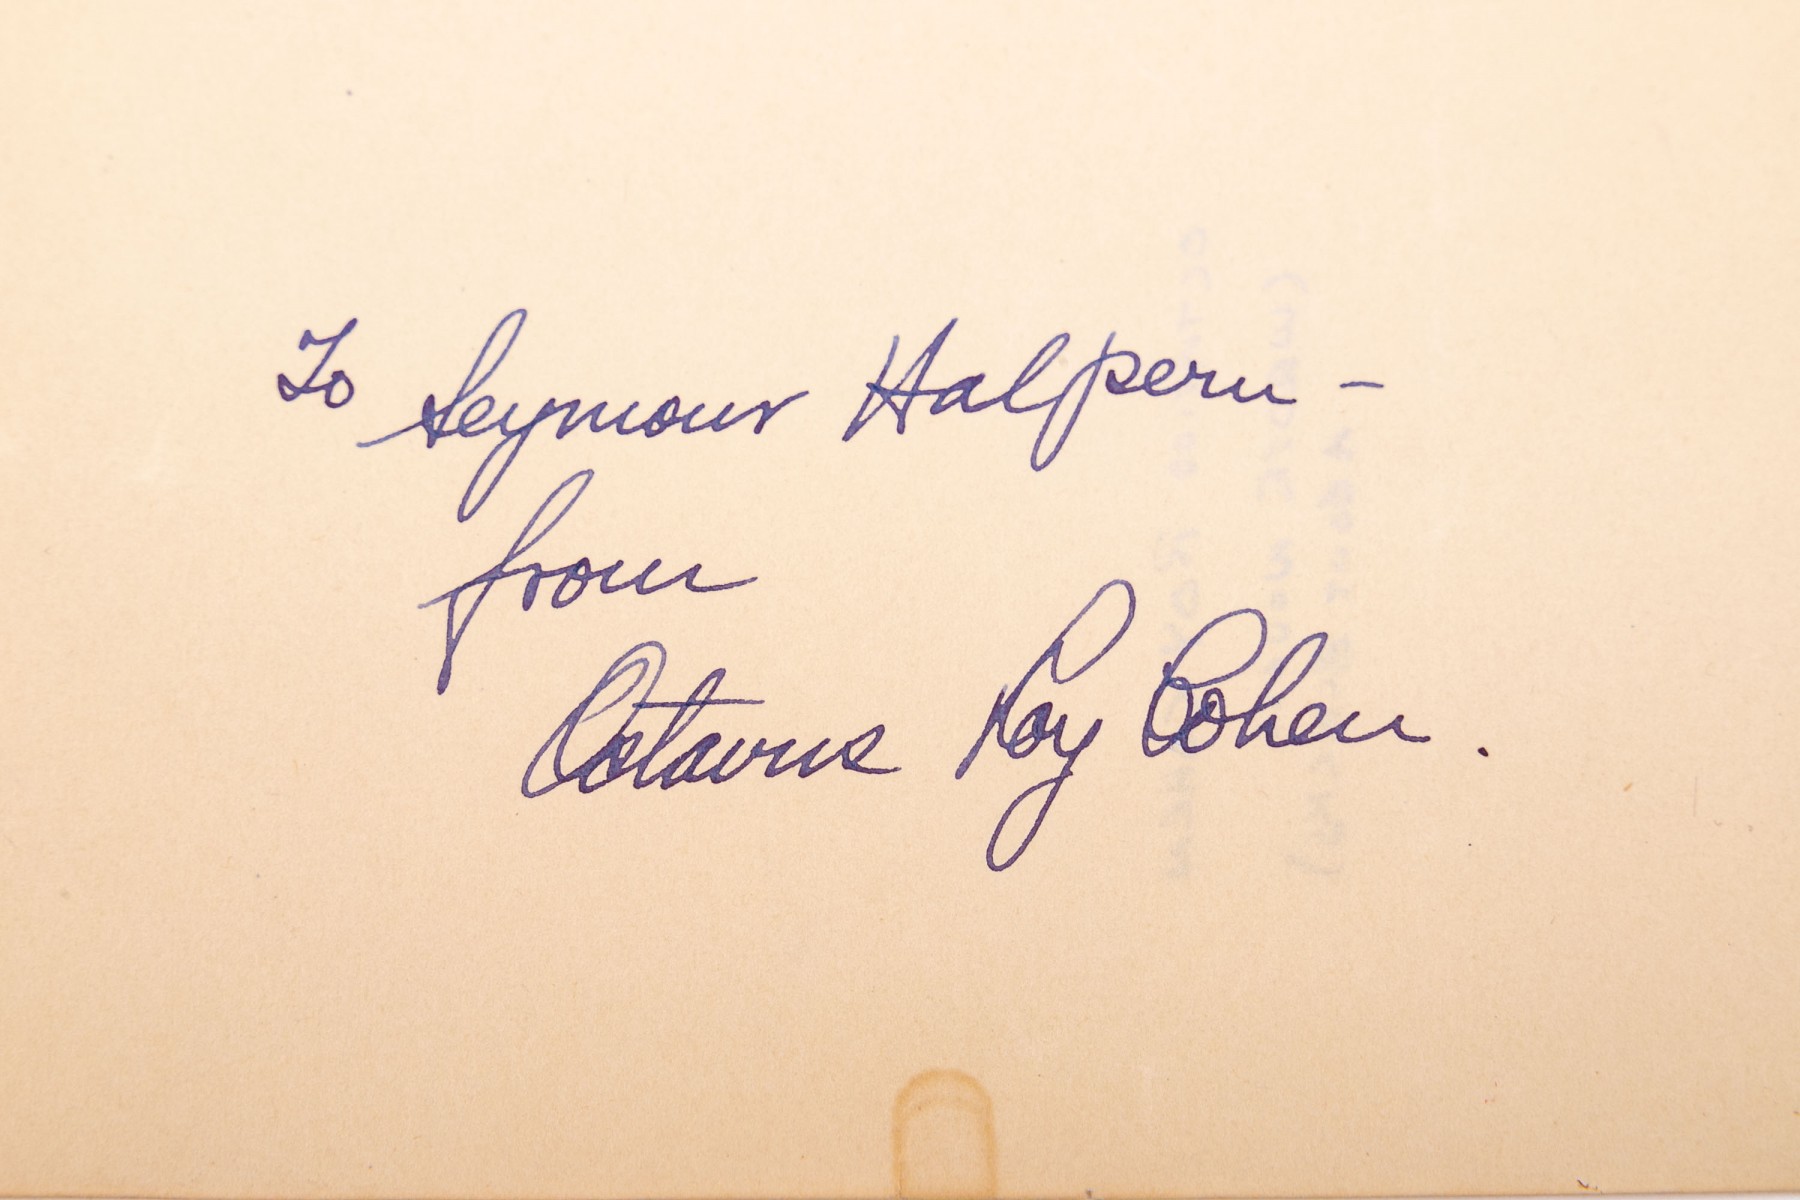 To Seymour Halpern –
from
Octavus Roy Cohen.